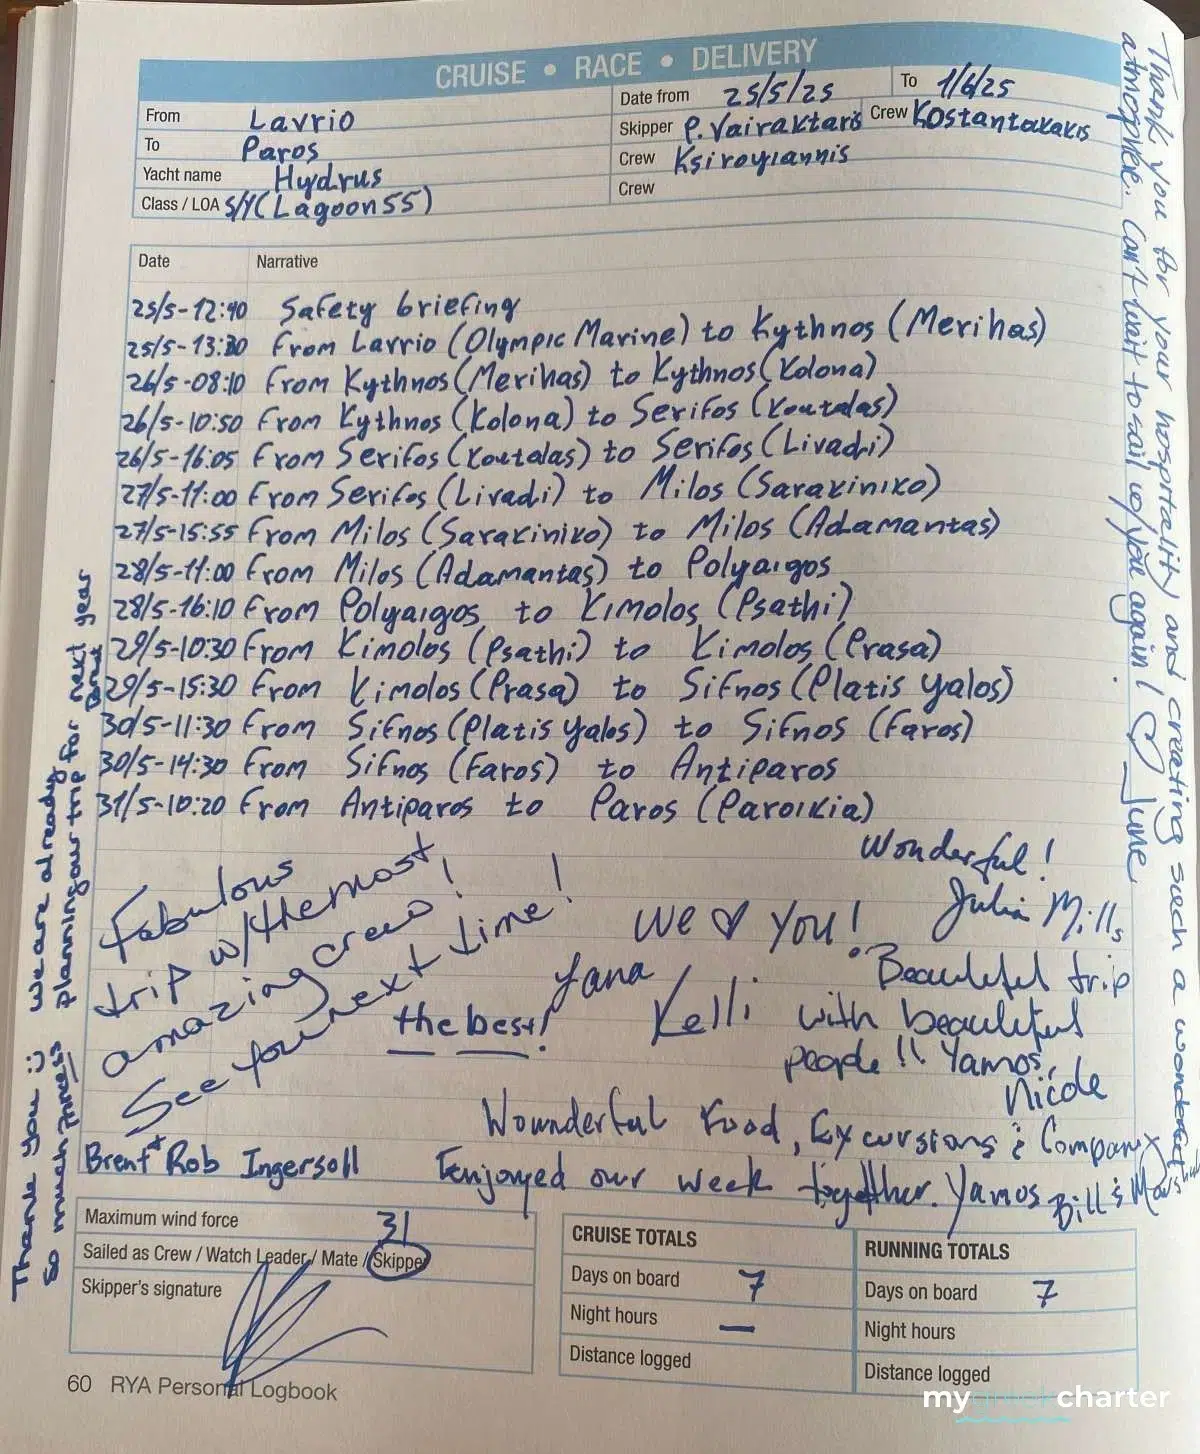 CRUISE • RACE • DELIVERY
From Lavrio
To Paros
Yacht name Hydrus
Class / LOA S/Y (Lagoon 55)
Date from 25/5/25 To 1/6/25
Skipper P. Vairaktaris Crew Kostantakakis
Crew Ksirogiannis
Crew
Date Narrative
25/5-12:40 Safety briefing
25/5-13:30 From Lavrio (Olympic Marine) to Kythnos (Merihas)
26/5-08:10 From Kythnos (Merihas) to Kythnos (Kolona)
26/5-10:50 From Kythnos (Kolona) to Serifos (Koutalas)
26/5-16:05 From Serifos (Koutalas) to Serifos (Livadi)
27/5-11:00 From Serifos (Livadi) to Milos (Sarakiniko)
27/5-15:55 From Milos (Sarakiniko) to Milos (Adamantas)
28/5-11:00 From Milos (Adamantas) to Polyaigos
28/5-16:10 From Polyaigos to Kimolos (Psathi)
29/5-10:30 From Kimolos (Psathi) to Kimolos (Prasa)
29/5-15:30 From Kimolos (Prasa) to Sifnos (Platis Yalos)
30/5-11:30 From Sifnos (Platis Yalos) to Sifnos (Faros)
30/5-14:30 From Sifnos (Faros) to Antiparos
31/5-10:20 From Antiparos to Paros (Paroikia)
Fabulous
trip w/ the most
amazing crew!
See you next time!
Wonderful!
Julia Mills
We ♡ You!
Yana
the best!
Kelli
Beautiful trip
with beautiful
people!! Yamos,
Nicole
Wounderful Food, Excursions & Company
Brent + Rob Ingersoll
I enjoyed our week together. Yamos Bill & Mars
Thank you :) We are already
so much planning our trip for next year
Thank you for your hospitality and creating such a wonderful
atmosphere. Can't wait to sail w/ you again! ♡ June
Maximum wind force 31
Sailed as Crew / Watch Leader / Mate / Skipper
Skipper's signature
CRUISE TOTALS
Days on board 7
Night hours —
Distance logged
RUNNING TOTALS
Days on board 7
Night hours
Distance logged
60 RYA Personal Logbook
mygreekcharter